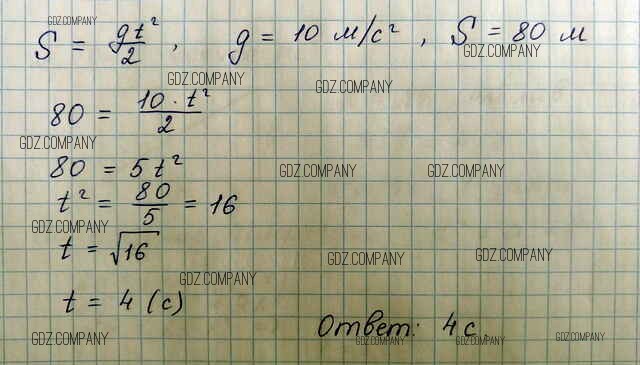 GDZ.COMPANY
S = gt²/2, g = 10 м/с², S = 80 м
GDZ.COMPANY
GDZ.COMPANY GDZ.COMPANY
80 = 10 · t²/2
GDZ.COMPANY
80 = 5t²
GDZ.COMPANY GDZ.COMPANY
t² = 80/5 = 16
GDZ.COMPANY
t = √16
GDZ.COMPANY GDZ.COMPANY
GDZ.COMPANY
t = 4 (с)
Ответ: 4 с.
GDZ.COMPANY GDZ.COMPANY GDZ.COMPANY GDZ.COMPANY